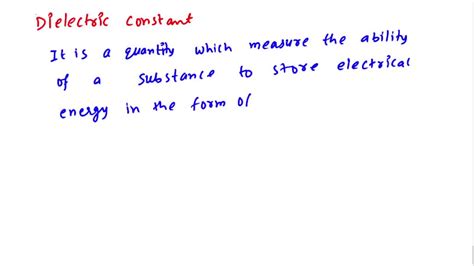 Dielectric constant
It is a quantity which measure the ability
of a substance to store electrical
energy in the form of